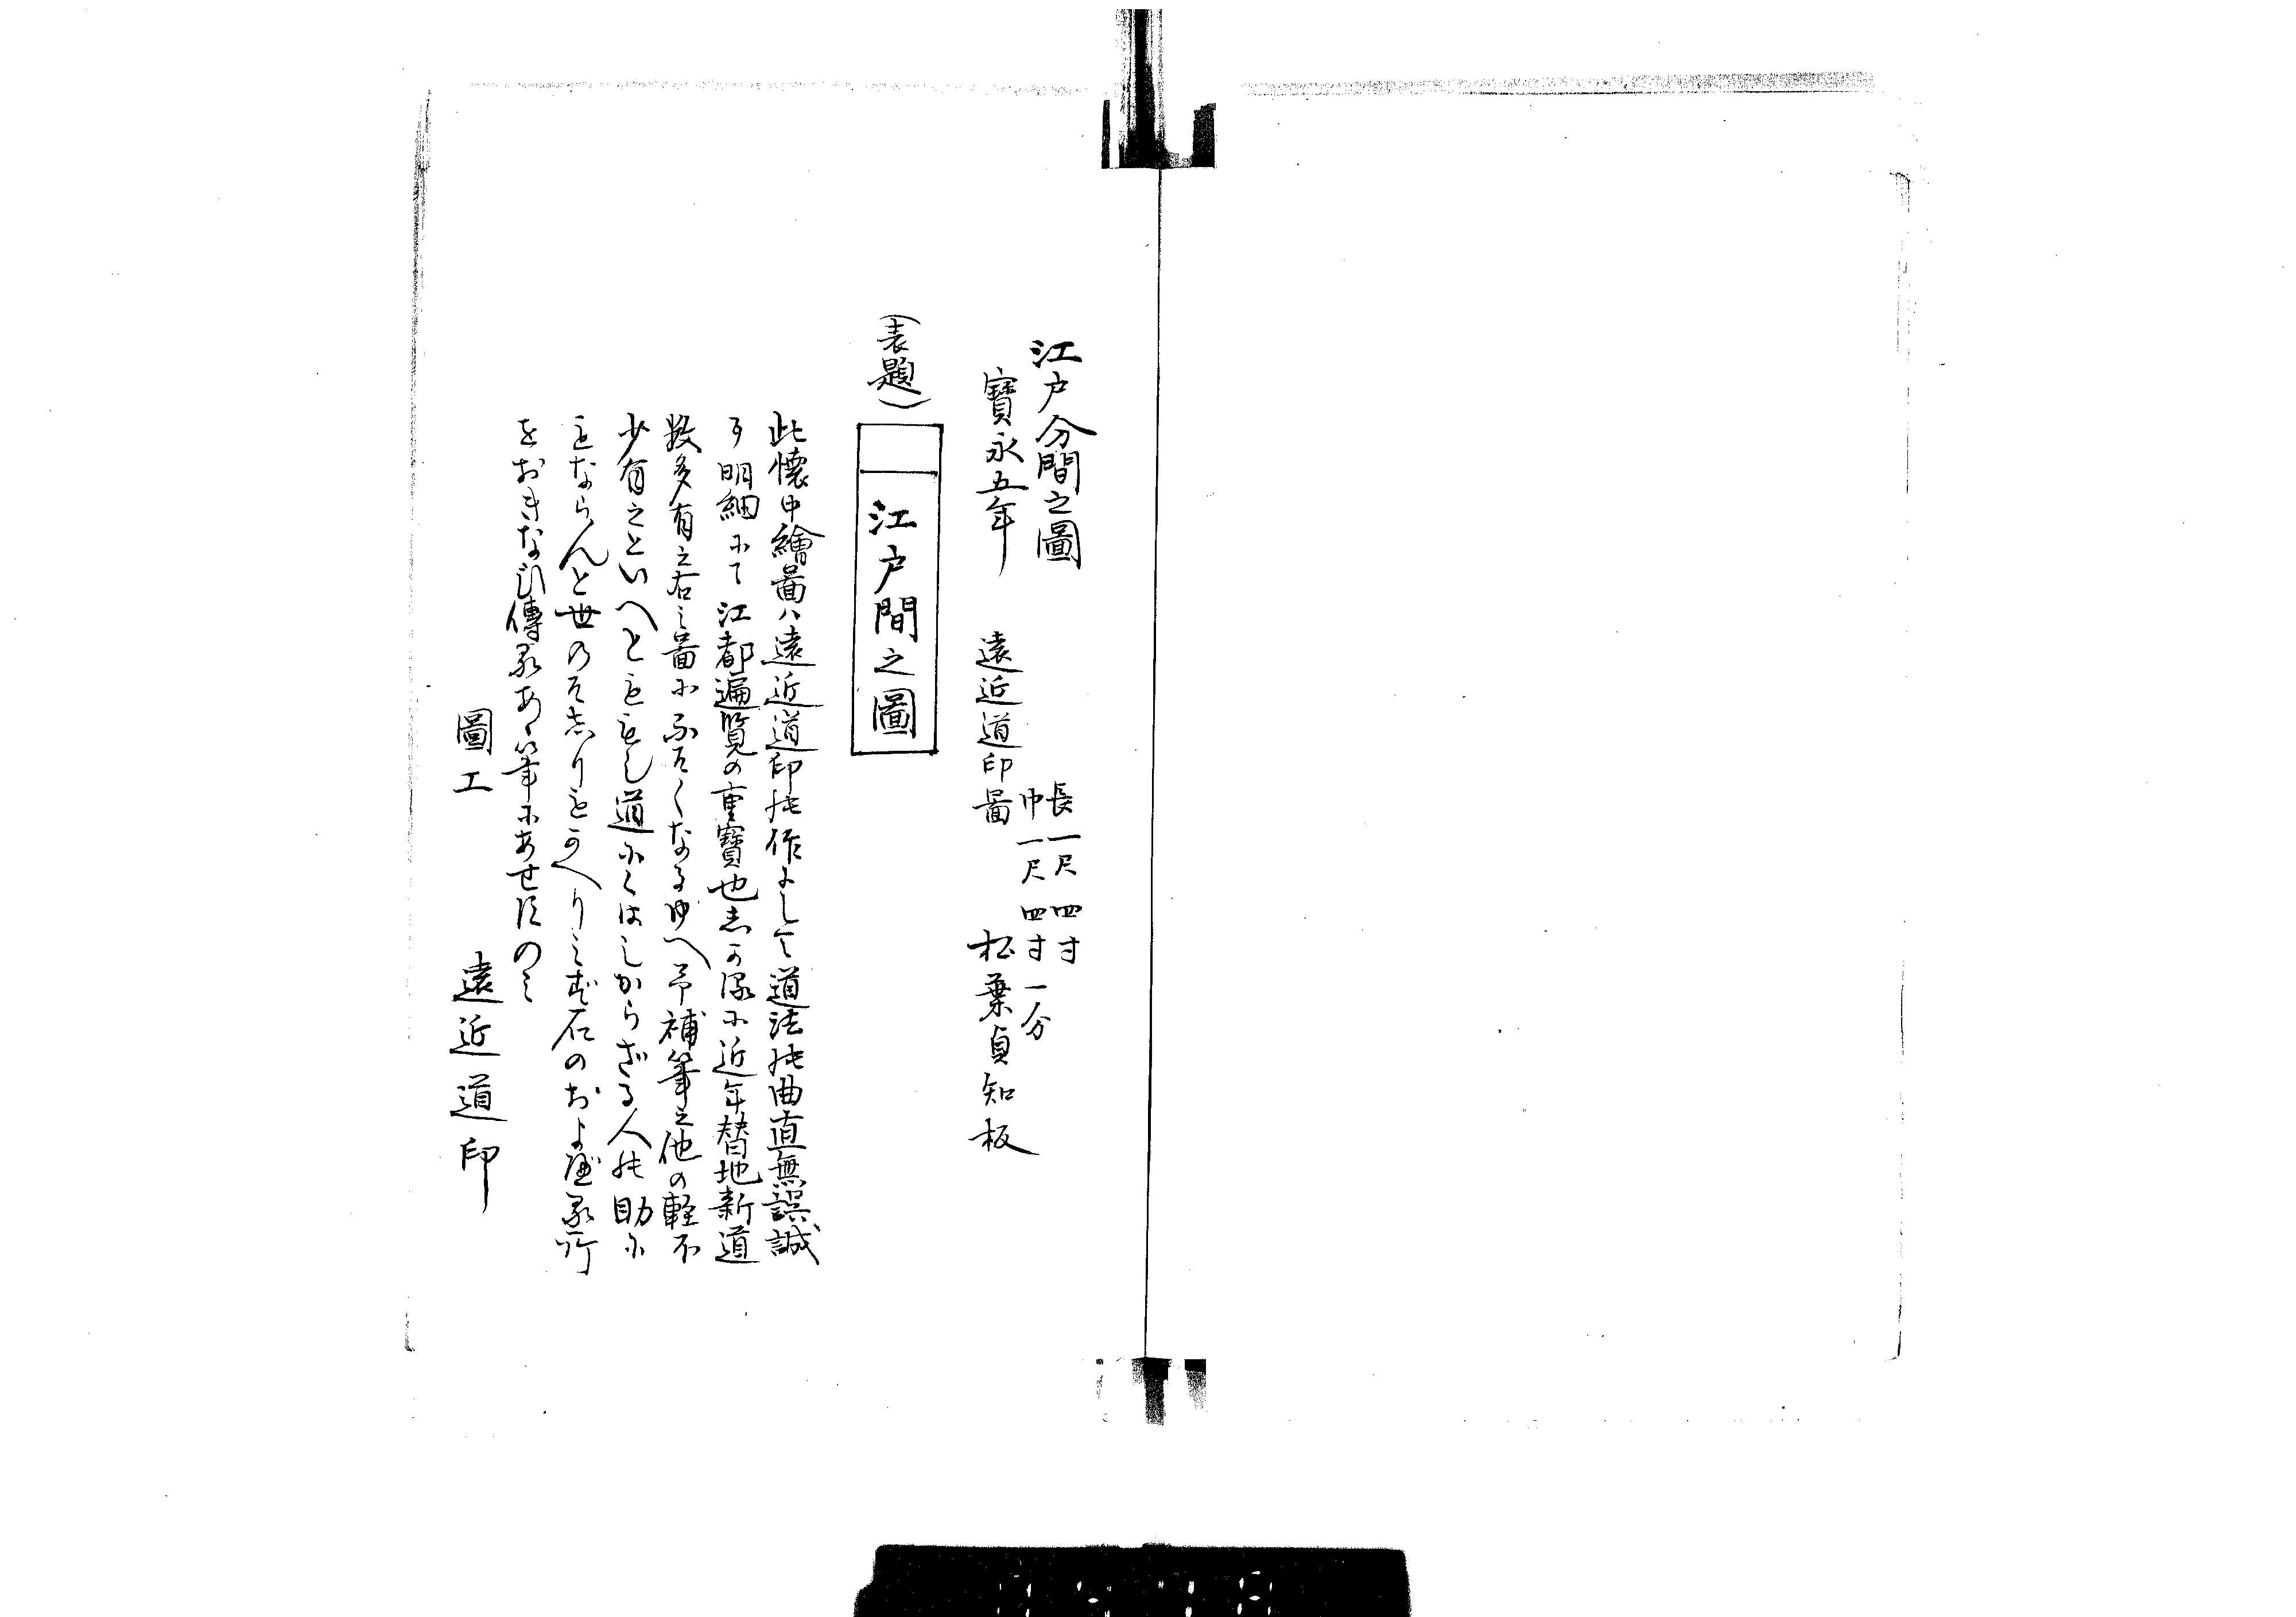 江戸分間之圖
長一尺四寸
巾一尺四寸一分
寶永五年 遠近道印圖 松葉貞知板
(表題)
江戸間之圖
此懐中繪圖ハ遠近道印の作にして道法の曲直無誤誠
明細にて江都遍覧の重寶也しかるに近年替地新道
数多有之右之圖にふそくなるゆへ予補筆之他の軽不
少有之といへとももし道にくはしからざる人の助に
もならんと世のそしりをかへりみず石のおよ
をおきなひ傳あ筆にあせすのミ
圖工 遠近道印